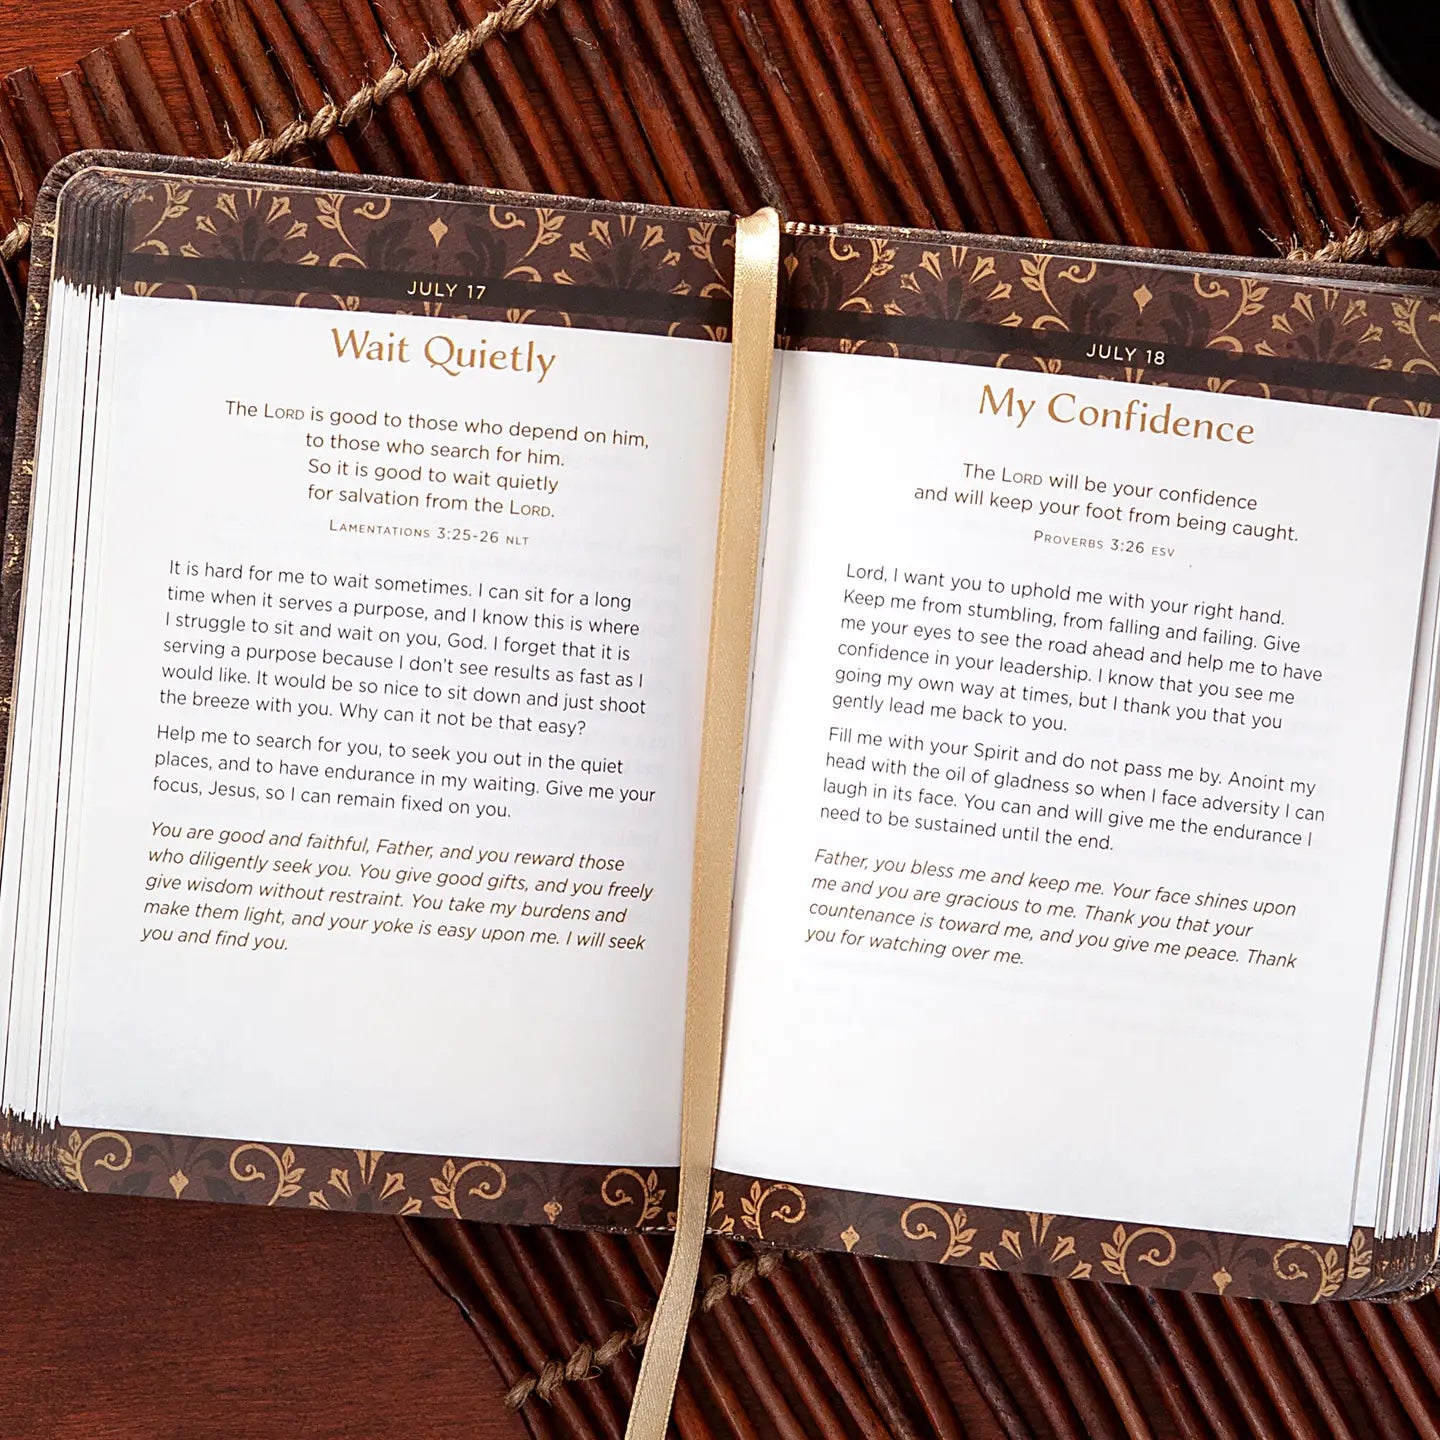 JULY 17
Wait Quietly
The LORD is good to those who depend on him,
to those who search for him.
So it is good to wait quietly
for salvation from the LORD.
LAMENTATIONS 3:25-26 NLT
It is hard for me to wait sometimes. I can sit for a long
time when it serves a purpose, and I know this is where
I struggle to sit and wait on you, God. I forget that it is
serving a purpose because I don't see results as fast as I
would like. It would be so nice to sit down and just shoot
the breeze with you. Why can it not be that easy?
Help me to search for you, to seek you out in the quiet
places, and to have endurance in my waiting. Give me your
focus, Jesus, so I can remain fixed on you.
You are good and faithful, Father, and you reward those
who diligently seek you. You give good gifts, and you freely
give wisdom without restraint. You take my burdens and
make them light, and your yoke is easy upon me. I will seek
you and find you.
JULY 18
My Confidence
The LORD will be your confidence
and will keep your foot from being caught.
PROVERBS 3:26 ESV
Lord, I want you to uphold me with your right hand.
Keep me from stumbling, from falling and failing. Give
me your eyes to see the road ahead and help me to have
confidence in your leadership. I know that you see me
going my own way at times, but I thank you that you
gently lead me back to you.
Fill me with your Spirit and do not pass me by. Anoint my
head with the oil of gladness so when I face adversity I can
laugh in its face. You can and will give me the endurance I
need to be sustained until the end.
Father, you bless me and keep me. Your face shines upon
me and you are gracious to me. Thank you that your
countenance is toward me, and you give me peace. Thank
you for watching over me.